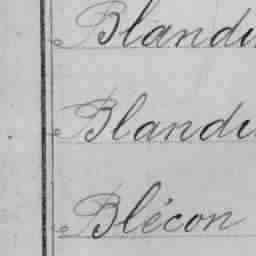 Blandi
Blandi
Blécon